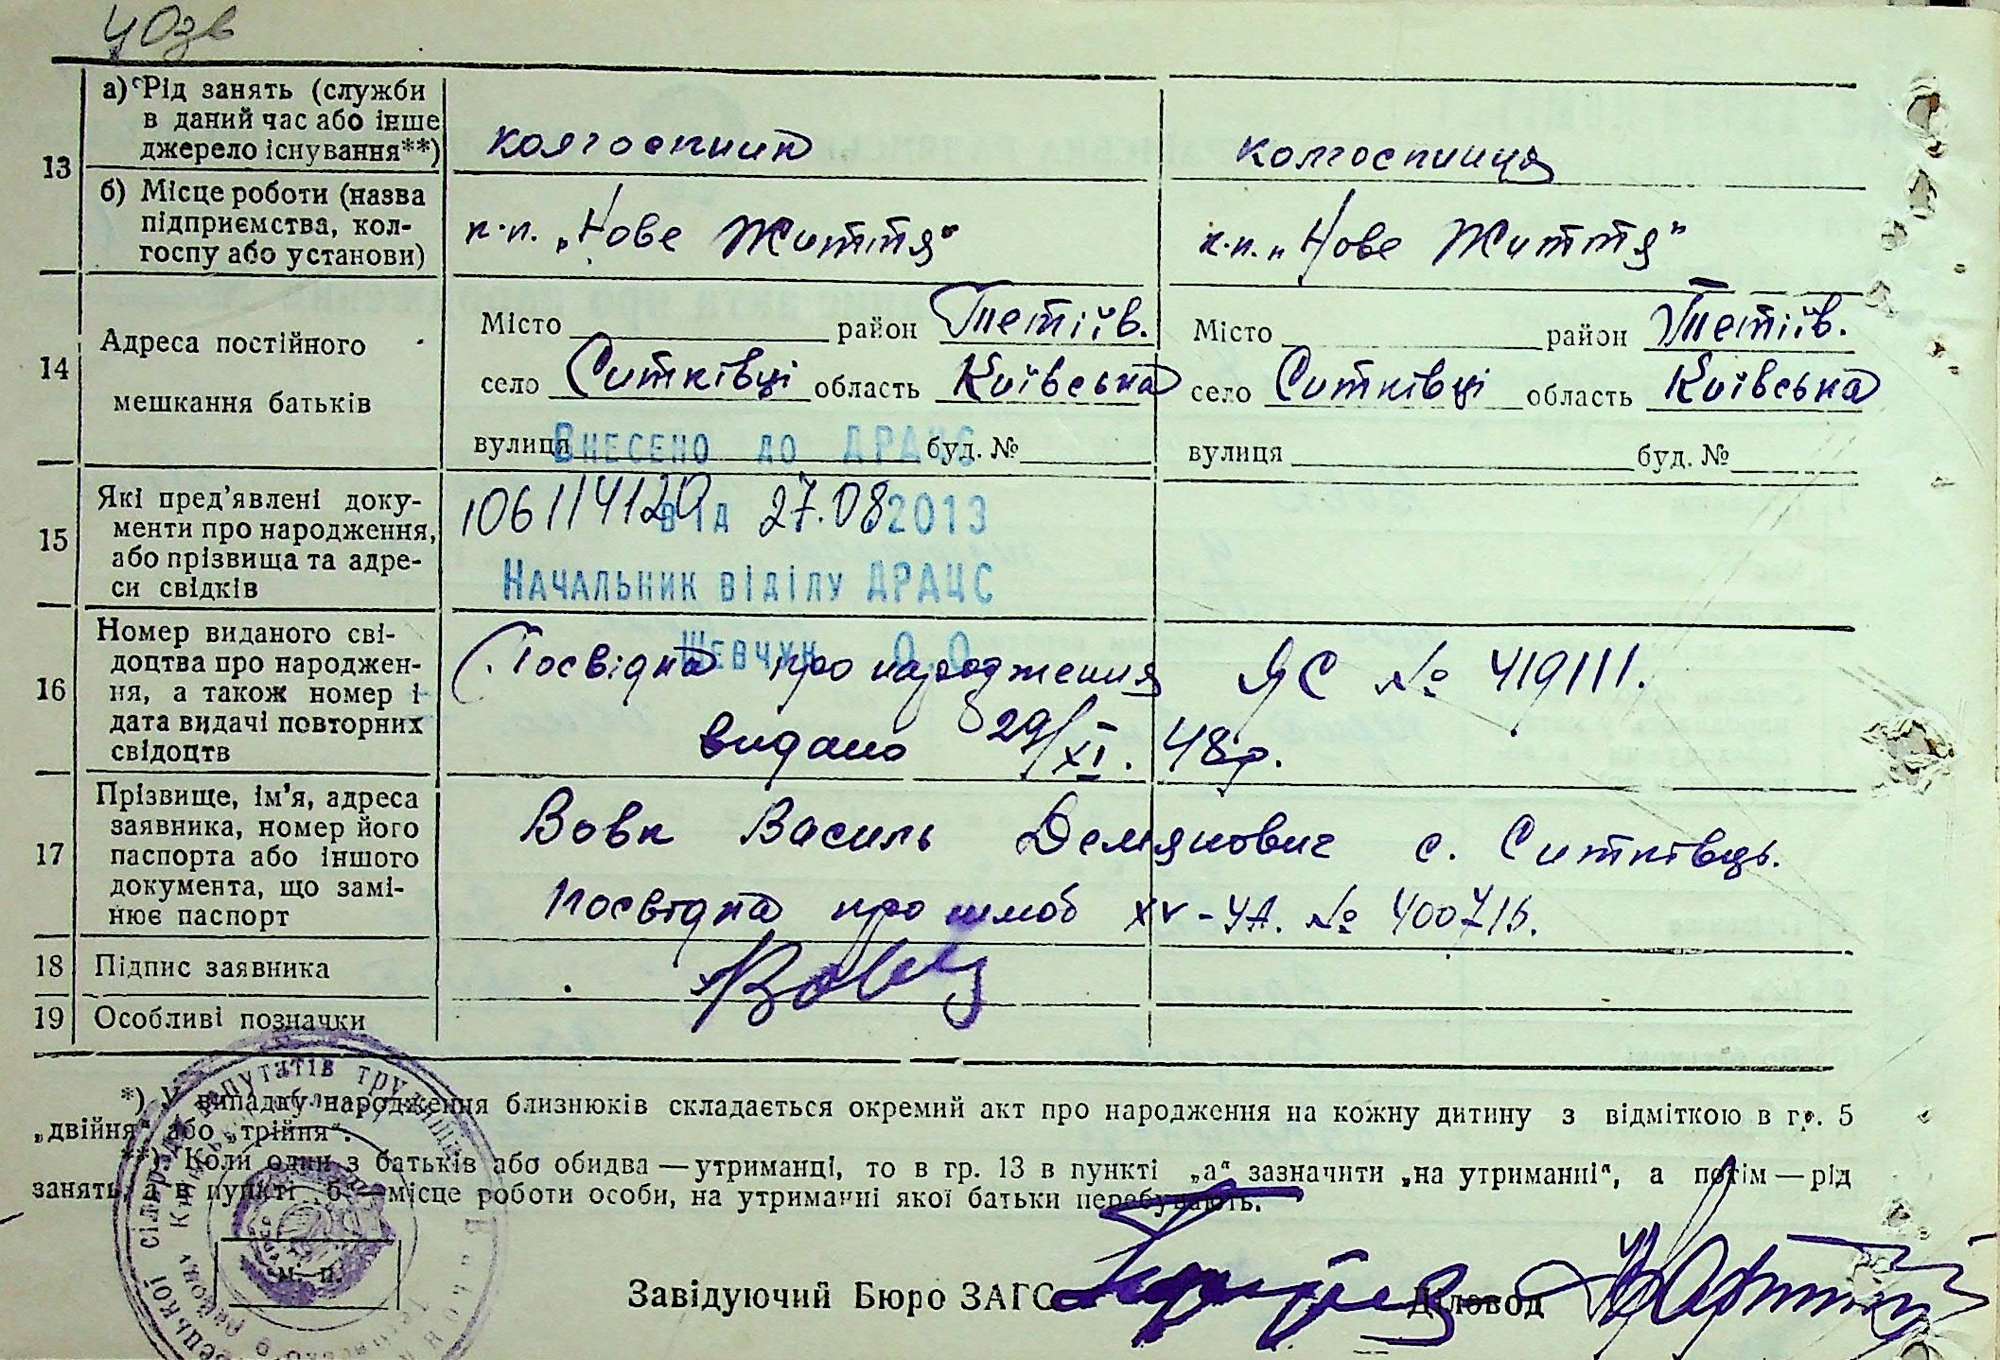 13
а) Рід занять (служби
в даний час або інше
джерело існування**)
колгоспник
колгоспниця
б) Місце роботи (назва
підприємства, кол-
госпу або установи)
к.п. „Нове Життя"
к.п. „Нове Життя"
14
Адреса постійного
мешкання батьків
Місто район Тетіїв.
село Ситківці область Київська
вулиця буд. №
Місто район Тетіїв.
село Ситківці область Київська
вулиця буд. №
Внесено до ДРАЦС
15
Які пред'явлені доку-
менти про народження,
або прізвища та адре-
си свідків
від 27.08 2013
Начальник відділу ДРАЦС
Шевчук О.О
16
Номер виданого сві-
доцтва про народжен-
ня, а також номер і
дата видачі повторних
свідоцтв
Посвідка про народження ЯС № 419111.
видано 29/XI. 48р.
17
Прізвище, ім'я, адреса
заявника, номер його
паспорта або іншого
документа, що замі-
нює паспорт
Вовк Василь Демянович с. Ситківць.
Посвідка про шлюб № 400715.
18
Підпис заявника
19
Особливі позначки
*) У випадку народження близнюків складається окремий акт про народження на кожну дитину з відміткою в гр. 5
„двійня" або „трійня".
**) Коли один з батьків або обидва — утриманці, то в гр. 13 в пункті „а" зазначити „на утриманні", а потім — рід
занять, а в пункті „б" — місце роботи особи, на утриманні якої батьки перебувають.
м. п.
Завідуючий Бюро ЗАГС
Діловод